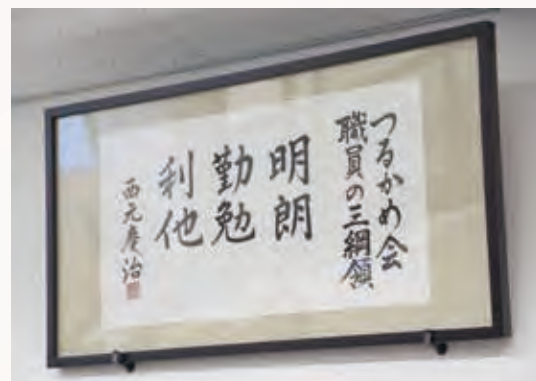 つるかめ会
職員の三綱領
明朗
勤勉
利他
西元慶治